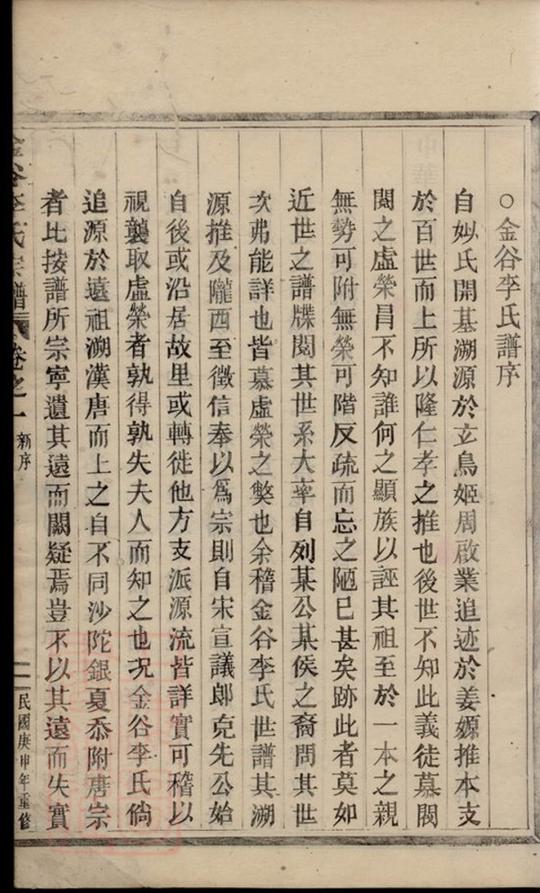 ○金谷李氏譜序
自姒氏開基溯源於立鳥姬周啟業追迹於姜嫄推本支
於百世而上所以隆仁孝之推也後世不知此義徒慕閥
閱之虛榮昌不知誰何之顯族以誣其祖至於一本之親
無勢可附無榮可階反疏而忘之陋已甚矣跡此者莫如
近世之譜牒閱其世系大率自列某公某侯之裔問其世
次弗能詳也皆慕虛榮之獘也余稽金谷李氏世譜其溯
源推及隴西至徵信奉以爲宗則自宋宣議郎克先公始
自後或沿居故里或轉徙他方支派源流皆詳實可稽以
視襲取虛榮者孰得孰失夫人而知之也况金谷李氏倘
追源於遠祖溯漢唐而上之自不同沙陀銀夏忝附唐宗
者比按譜所宗寧遺其遠而闕疑焉豈不以其遠而失實
金谷李氏宗譜
卷之一
新序
一
民國庚申年重修